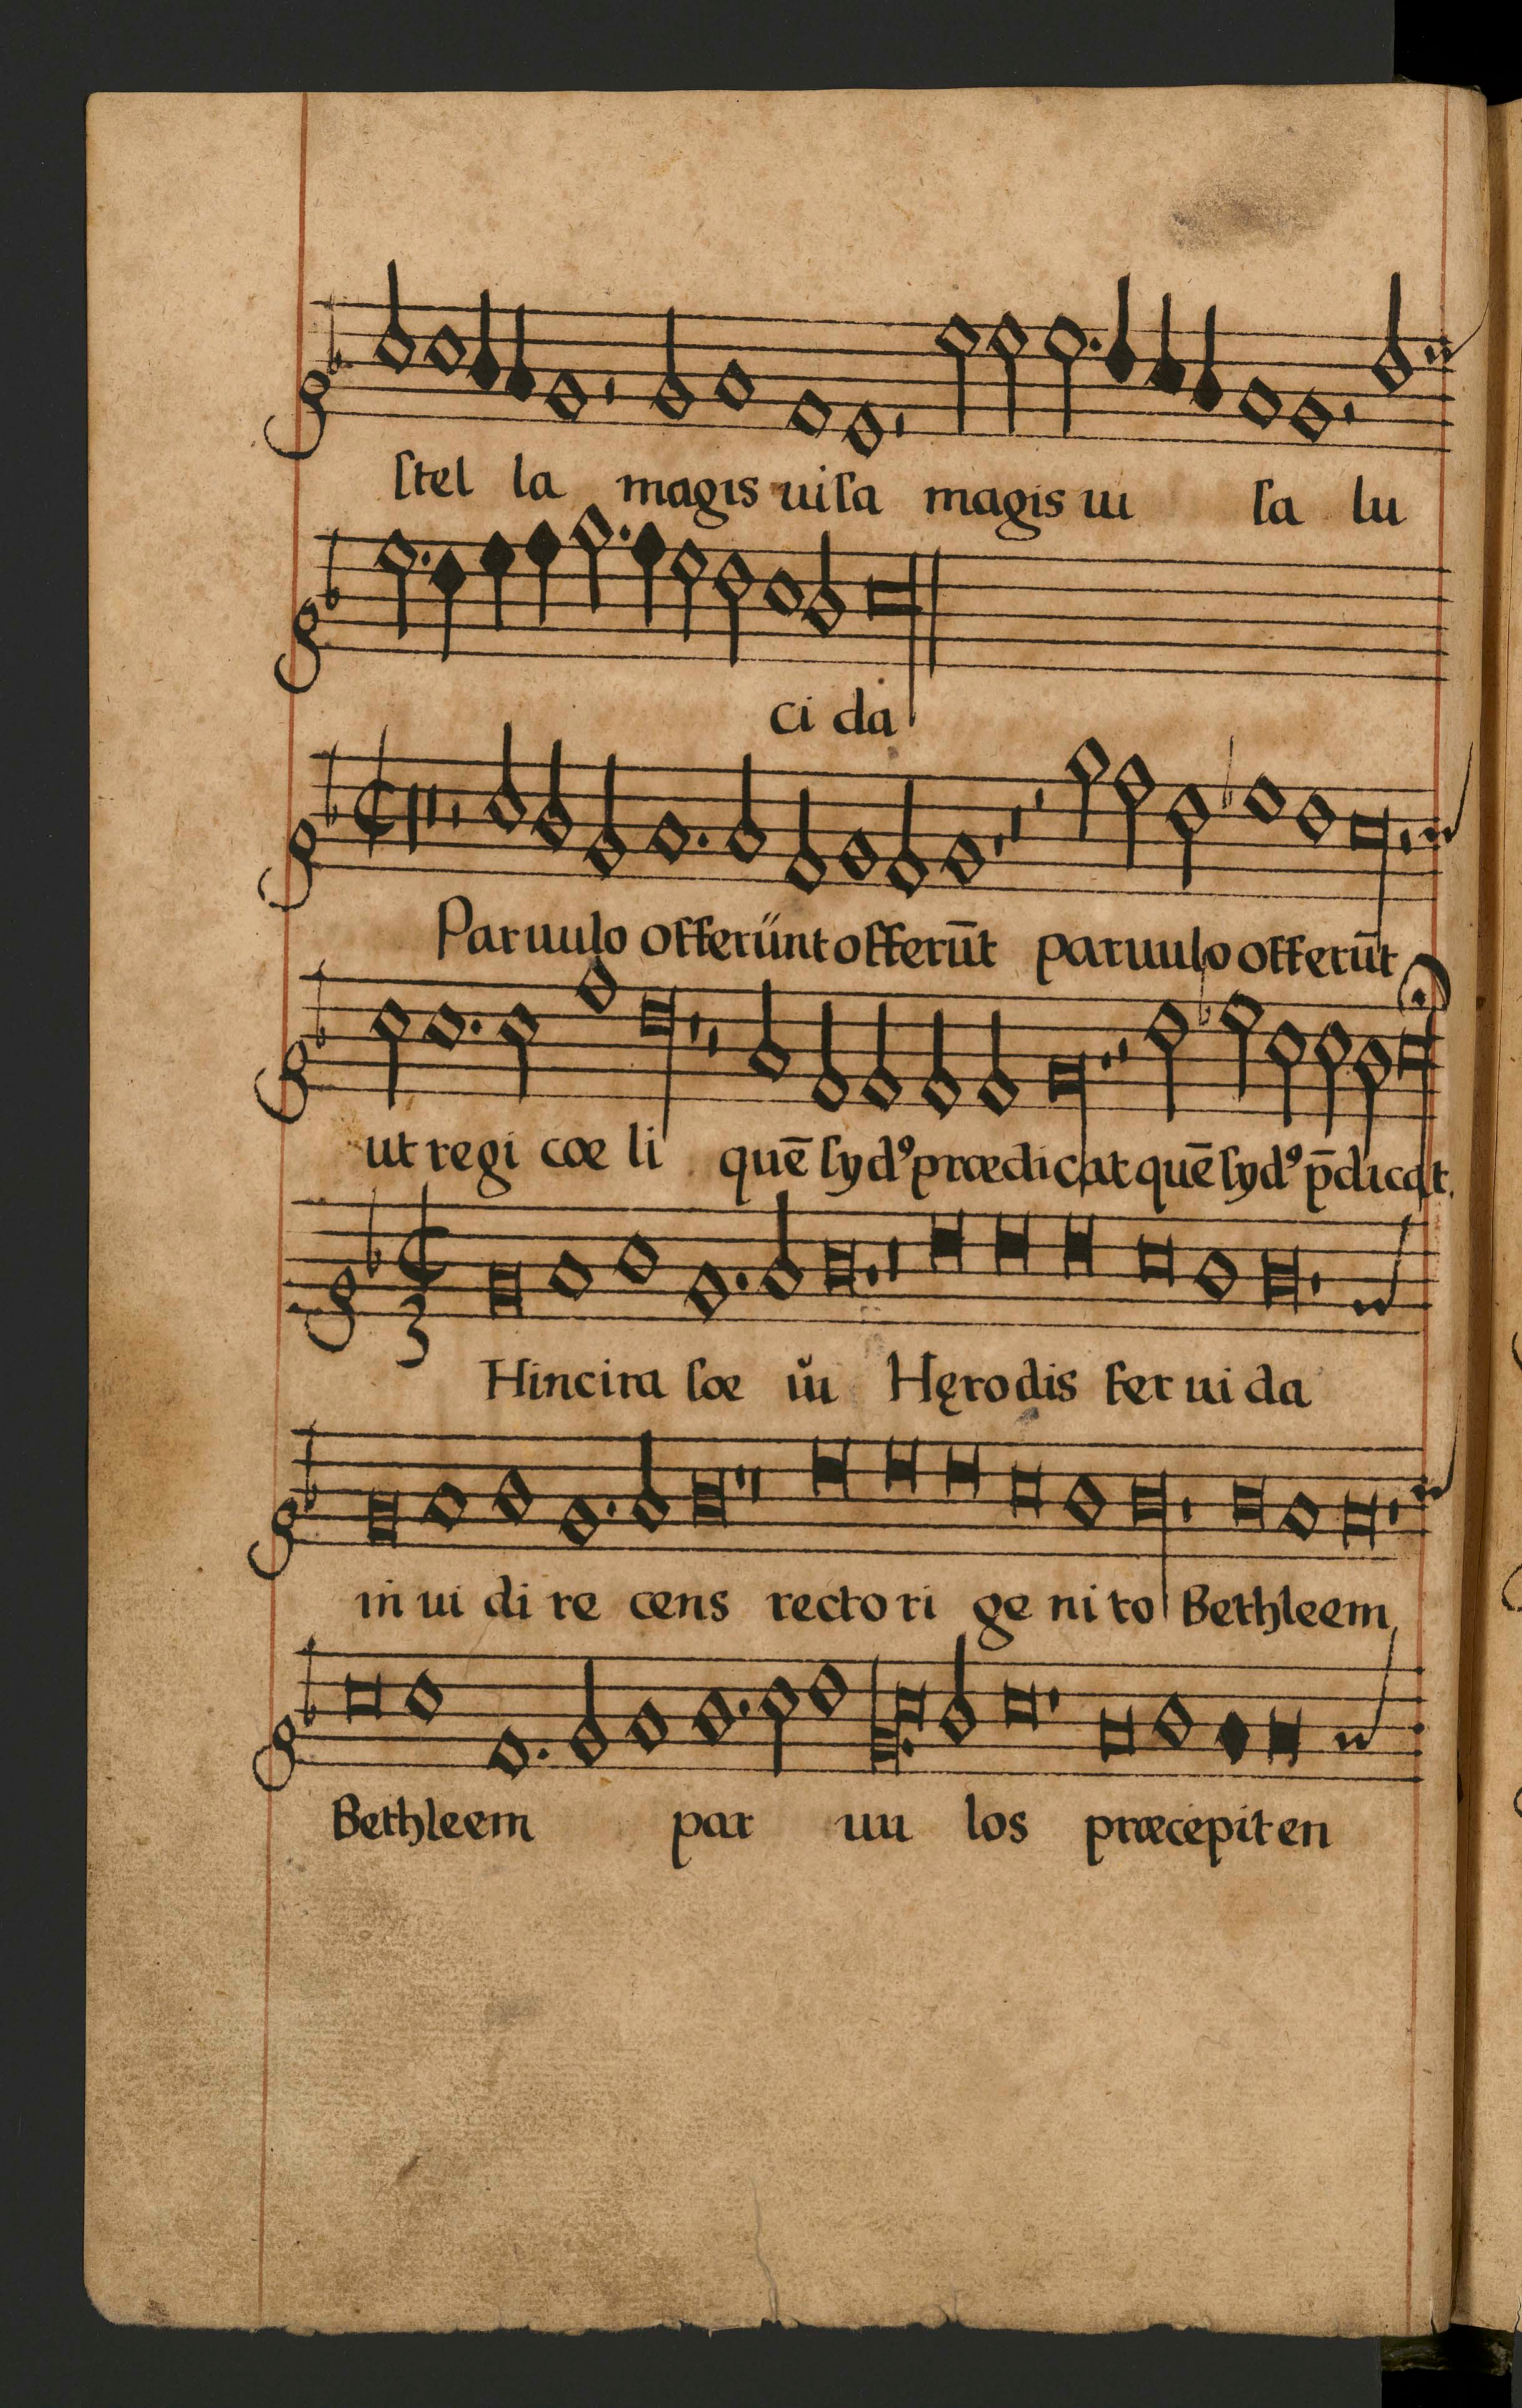 ſtel la magis uiſa magis ui ſa lu
ci da
Paruulo offerünt offerūt paruulo offerūt
ut regi cœ li quē ſydꝰ prædicat quē ſydꝰ p̄dicat.
Hinc ira ſæ ŭi Hęrodis feruida
in ui di re cens rectori ge ni to Bethleem
Bethleem par uu los præcepit en